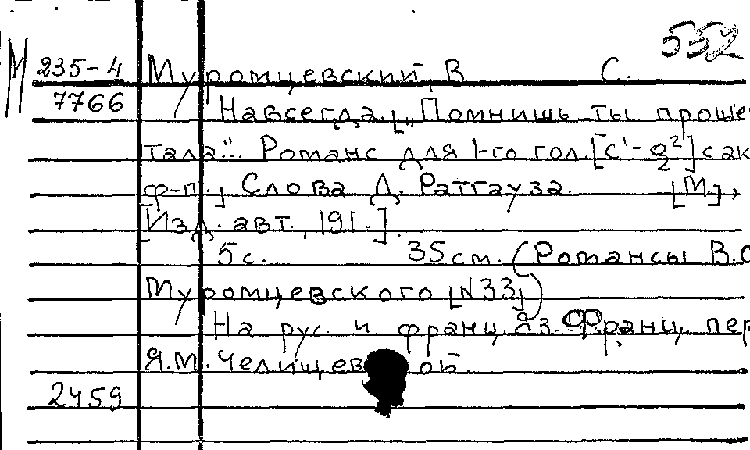 552
М 235-4 Муромцевский, В. С.
7766 Навсегда. [„Помнишь ты проше-
тала“... Романс для 1-го гол. [c¹-g²] с ак
ф-п.] Слова Д. Ратгауза. [М.],
[Изд. авт., 191.].
5 с. 35 см. (Романсы В.С
Муромцевского [№33])
На рус. и франц. яз. Франц. пер
Я.М. Челищев ой.
2459